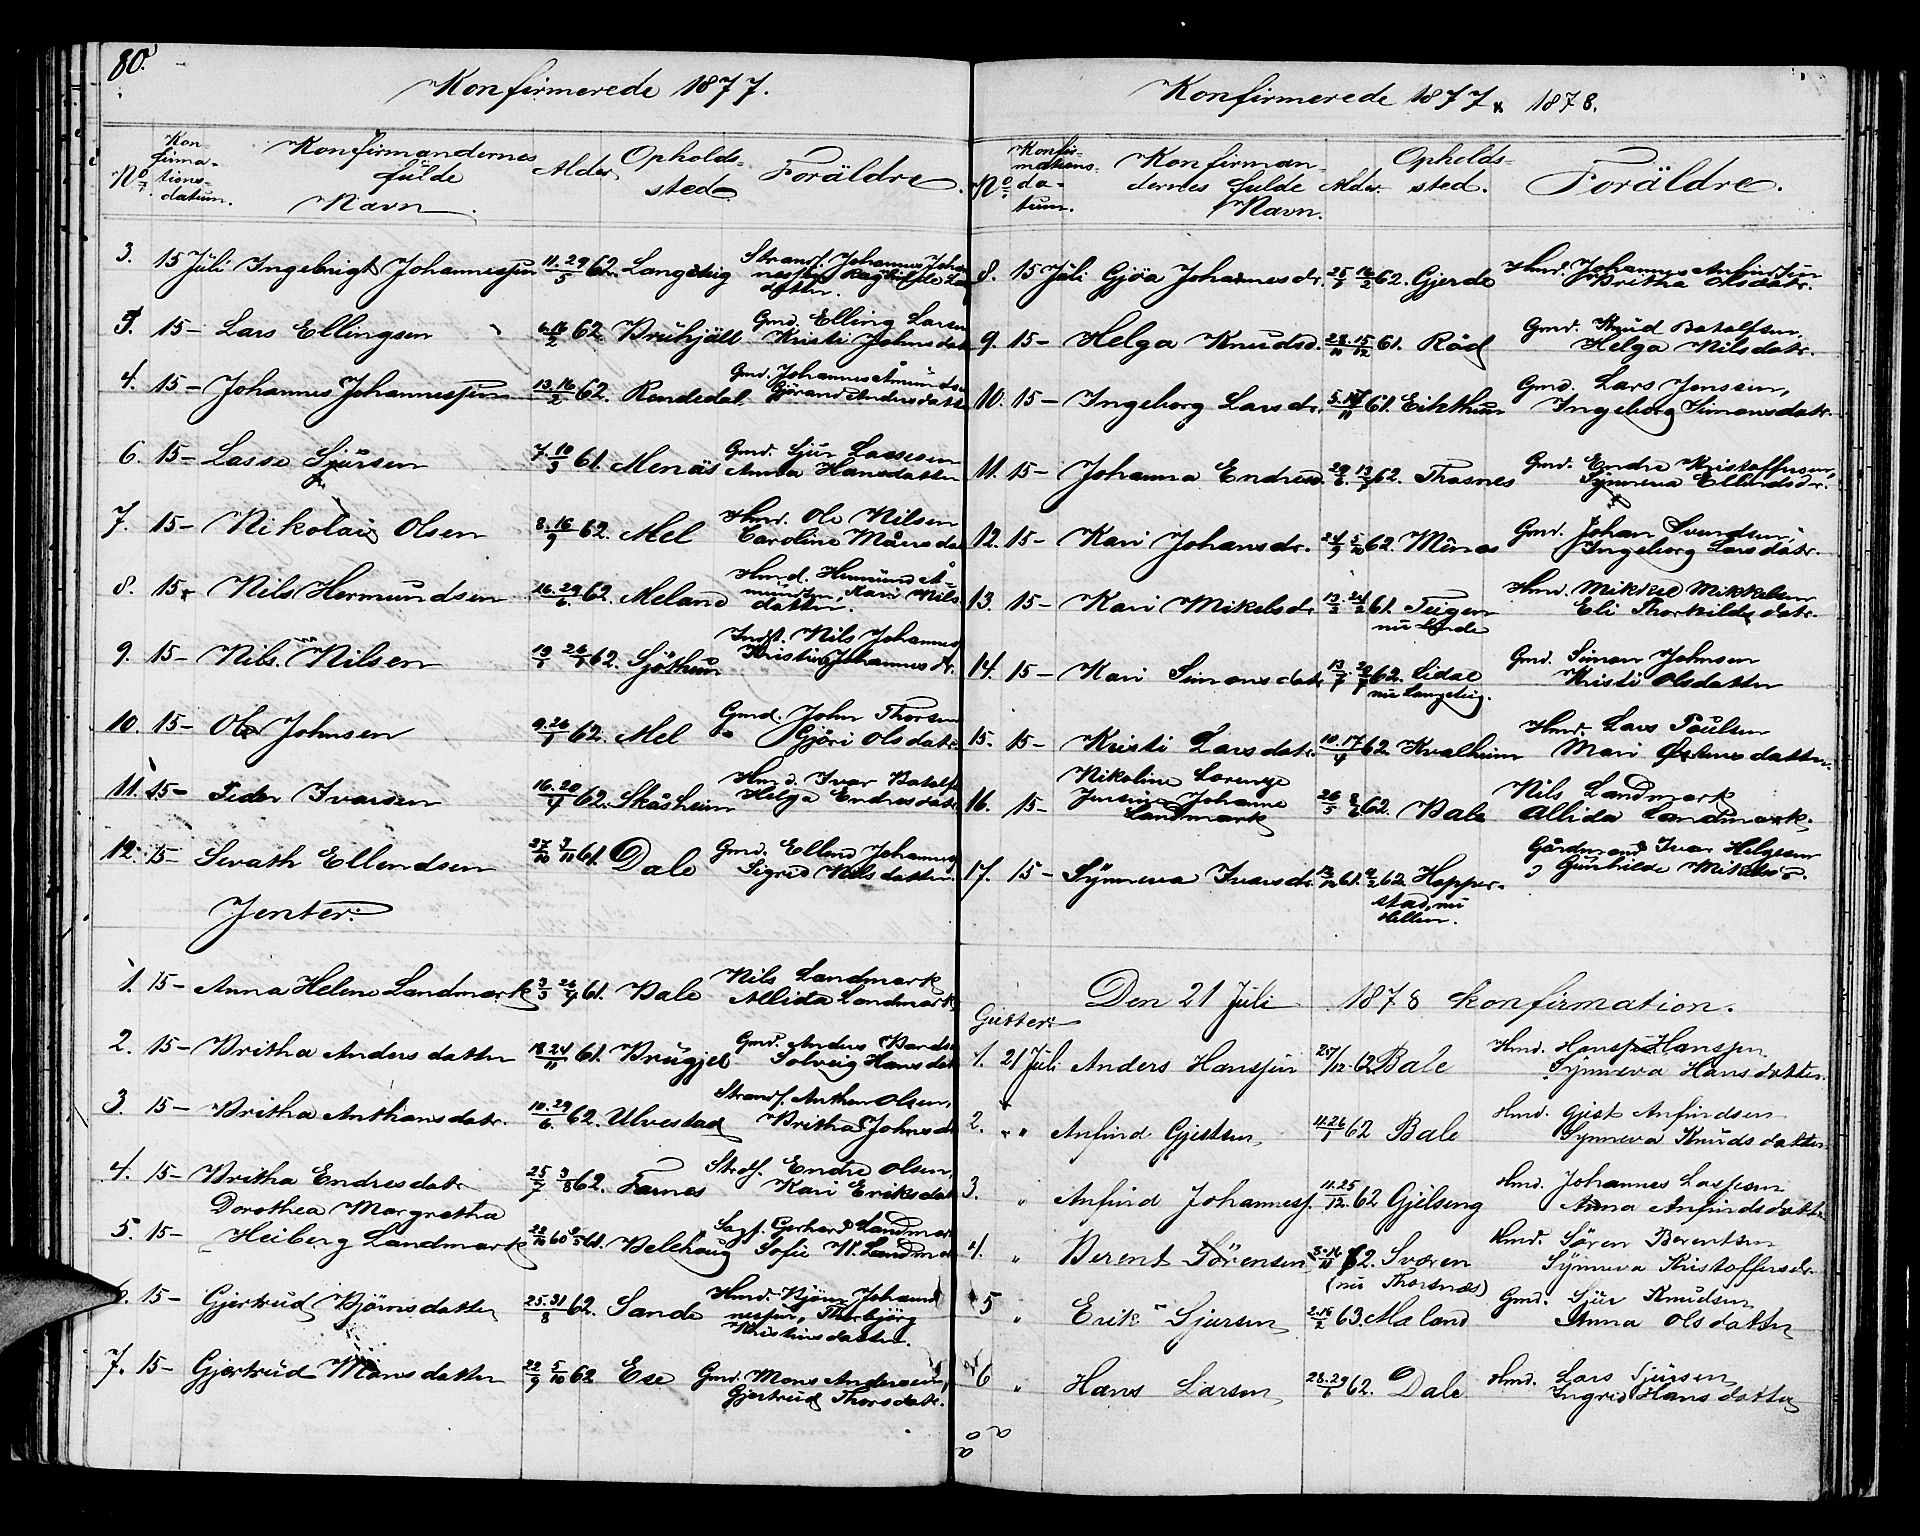 80.
Konfirmerede 1877.
No. Konfirmationsdatum. Konfirmandernes fulde Navn. Alder Opholdssted. Foräldre.
3. 15 Juli Ingebrigt Johannessen 11. 29/5 62. Langeteig Strands. Johannes Johannessen
datter.
5. 15- Lars Ellingsen 6. 16/2 62. Gmd. Elling Larsen
Kristi Johnsdatt
4. 15- Johannes Johannessen 13. 16/2 62. Rendedal. Gmd. Johannes Åmunds
Gjörand Andersdatt
6. 15- Lasse Sjursen 7. 10/3 61. Menäs Gmd. Sjur Lassesen
Anna Hansdatter
7. 15- Nikolai Olsen 8. 16/9 62. Mel Hmd. Ole Nilsen
Caroline Månsda
8. 15- Nils Hermundsen 16. 29/6. 62. Meland Hmd. Hermund Å-
mundsen, Kari Nils
datter.
9. 15- Nils Nilsen 62. Sjöthun Indst. Nils Johannes
Kristi Johannesdr.
10. 15- Ole Johnsen 9. 26/1 62. Mel Gmd. John Thorsen
Gjöri Olsdatr.
11. 15- Peder Ivarsen 16. 20/7 62. Skåsheim Hmd. Ivar Batalfs
Helga Endresdatr
12. 15- Sivath Ellendsen 27/10 3/11 61. Dale Gmd. Ellend Johannes
Sigrid Nilsdatter.
Jenter:
1. 15- Anna Helene Landmark 3/3 26/4 61. Bale Nils Landmark
Allida Landmark
2. 15- Britha Andersdatter 18. 24/11 61. Brügjel Gmd. Anders
Solveig Hansdat
3. 15- Britha Anthonsdatr. 10. 29/6. 62. Ulvestad Strands. Anthon Olsen,
Britha Johnsd
4. 15- Britha Endresdatr 25/7 3/8 62. Farnes Strds. Endre Olsen,
Kari Eriksdat
5. 15- Dorothea Margretha
Heiberg Landmark 61. Belehaug Sagf. Gerhard Landmark
Sofie W. Landma
6. 15- Gjertrud Björnsdatter 25. 31/8 62. Sande Hmd. Björn Johan
nessen, Thorbjörg
Kristensdatter.
7. 15- Gjertrud Månsdatter 22/9 5/10 62 Ese Gmd. Mons Andersen,
Gjertrud Thorsdatr.
Konfirmerede 1877 & 1878.
No. Konfirmationsdatum. Konfirmandernes fulde Navn. Alder. Opholdssted. Foräldre.
8. 15 Juli Gjöa Johannesdr. 62. Gjerde Hmd. Johannes Anfindsen
Britha Olsdatr.
9. 15- Helga Knudsd. 28/11 15/12 61. Röd Gmd. Knud Botolfsen
Helga Nilsdatr.
10. 15- Ingeborg Larsdr. 61. Eikthun Gmd. Lars Jenssen,
Ingeborg Simonsdatr.
11. 15- Johanna Endresd. 29/6. 13/7 62. Thasnes Gmd. Endre Kristoffersen,
Synneva Ellendsdr.
12. 15- Kari Johansdr. 24/9 5/10 62. Månes Gmd. Johan Svendsen,
Ingeborg Larsdatr.
13. 15- Kari Mikelsdr 13/2 24/2 61. Teigen
nu Ende Hmd. Mikkel Mikkelsen
Eli Thorkildsdatr.
14. 15- Kari Simonsdatr 62. Lidal
nu Langeteig. Gmd. Simon Johnsen
Kristi Olsdatter
15. 15- Kristi Larsdatr. 10. 17/4 62 Kvalheim Hmd. Lars Poulsen
Mari Østensdatter.
16. 15- Nikoline Lorenze
Jensine Johanne
Landmark 62. Bale Nils Landmark
Allida Landmark.
17. 15- Synneva Ivarsdr 61. 62. Hopper-
stad, nu
Hellen. Gårdmand Ivar Helgesen
Gunhilde Mikelsd.
Den 21 Juli 1878 konfirmation.
Gutter:
1. 21 Juli Anders Hanssen 62 Bale Hmd. Hans Hanssen
Synneva Hansdatter.
2. " Anfind Gjestsen 11. 26/1 62 Bale Hmd. Gjest Anfindsen
Synneva Knudsdatter
3. " Anfind Johanness. 11. 25/12 62 Gjelseng Hmd. Johannes Lassesen
Anna Anfindsdatter
4. " Berent Sörensen 62. Sværen
(nu Thorsnæs) Hmd. Sören Berentsen
Synneva Kristoffersdr
5 " Erik Sjursen 2. 15/2 63. Mæland Gmd. Sjur Knudsen
Anna Olsdatter
6 " Hans Larsen 28. 29/6 62. Dale Hmd. Lars Sjursen
Ingrid Hansdatter